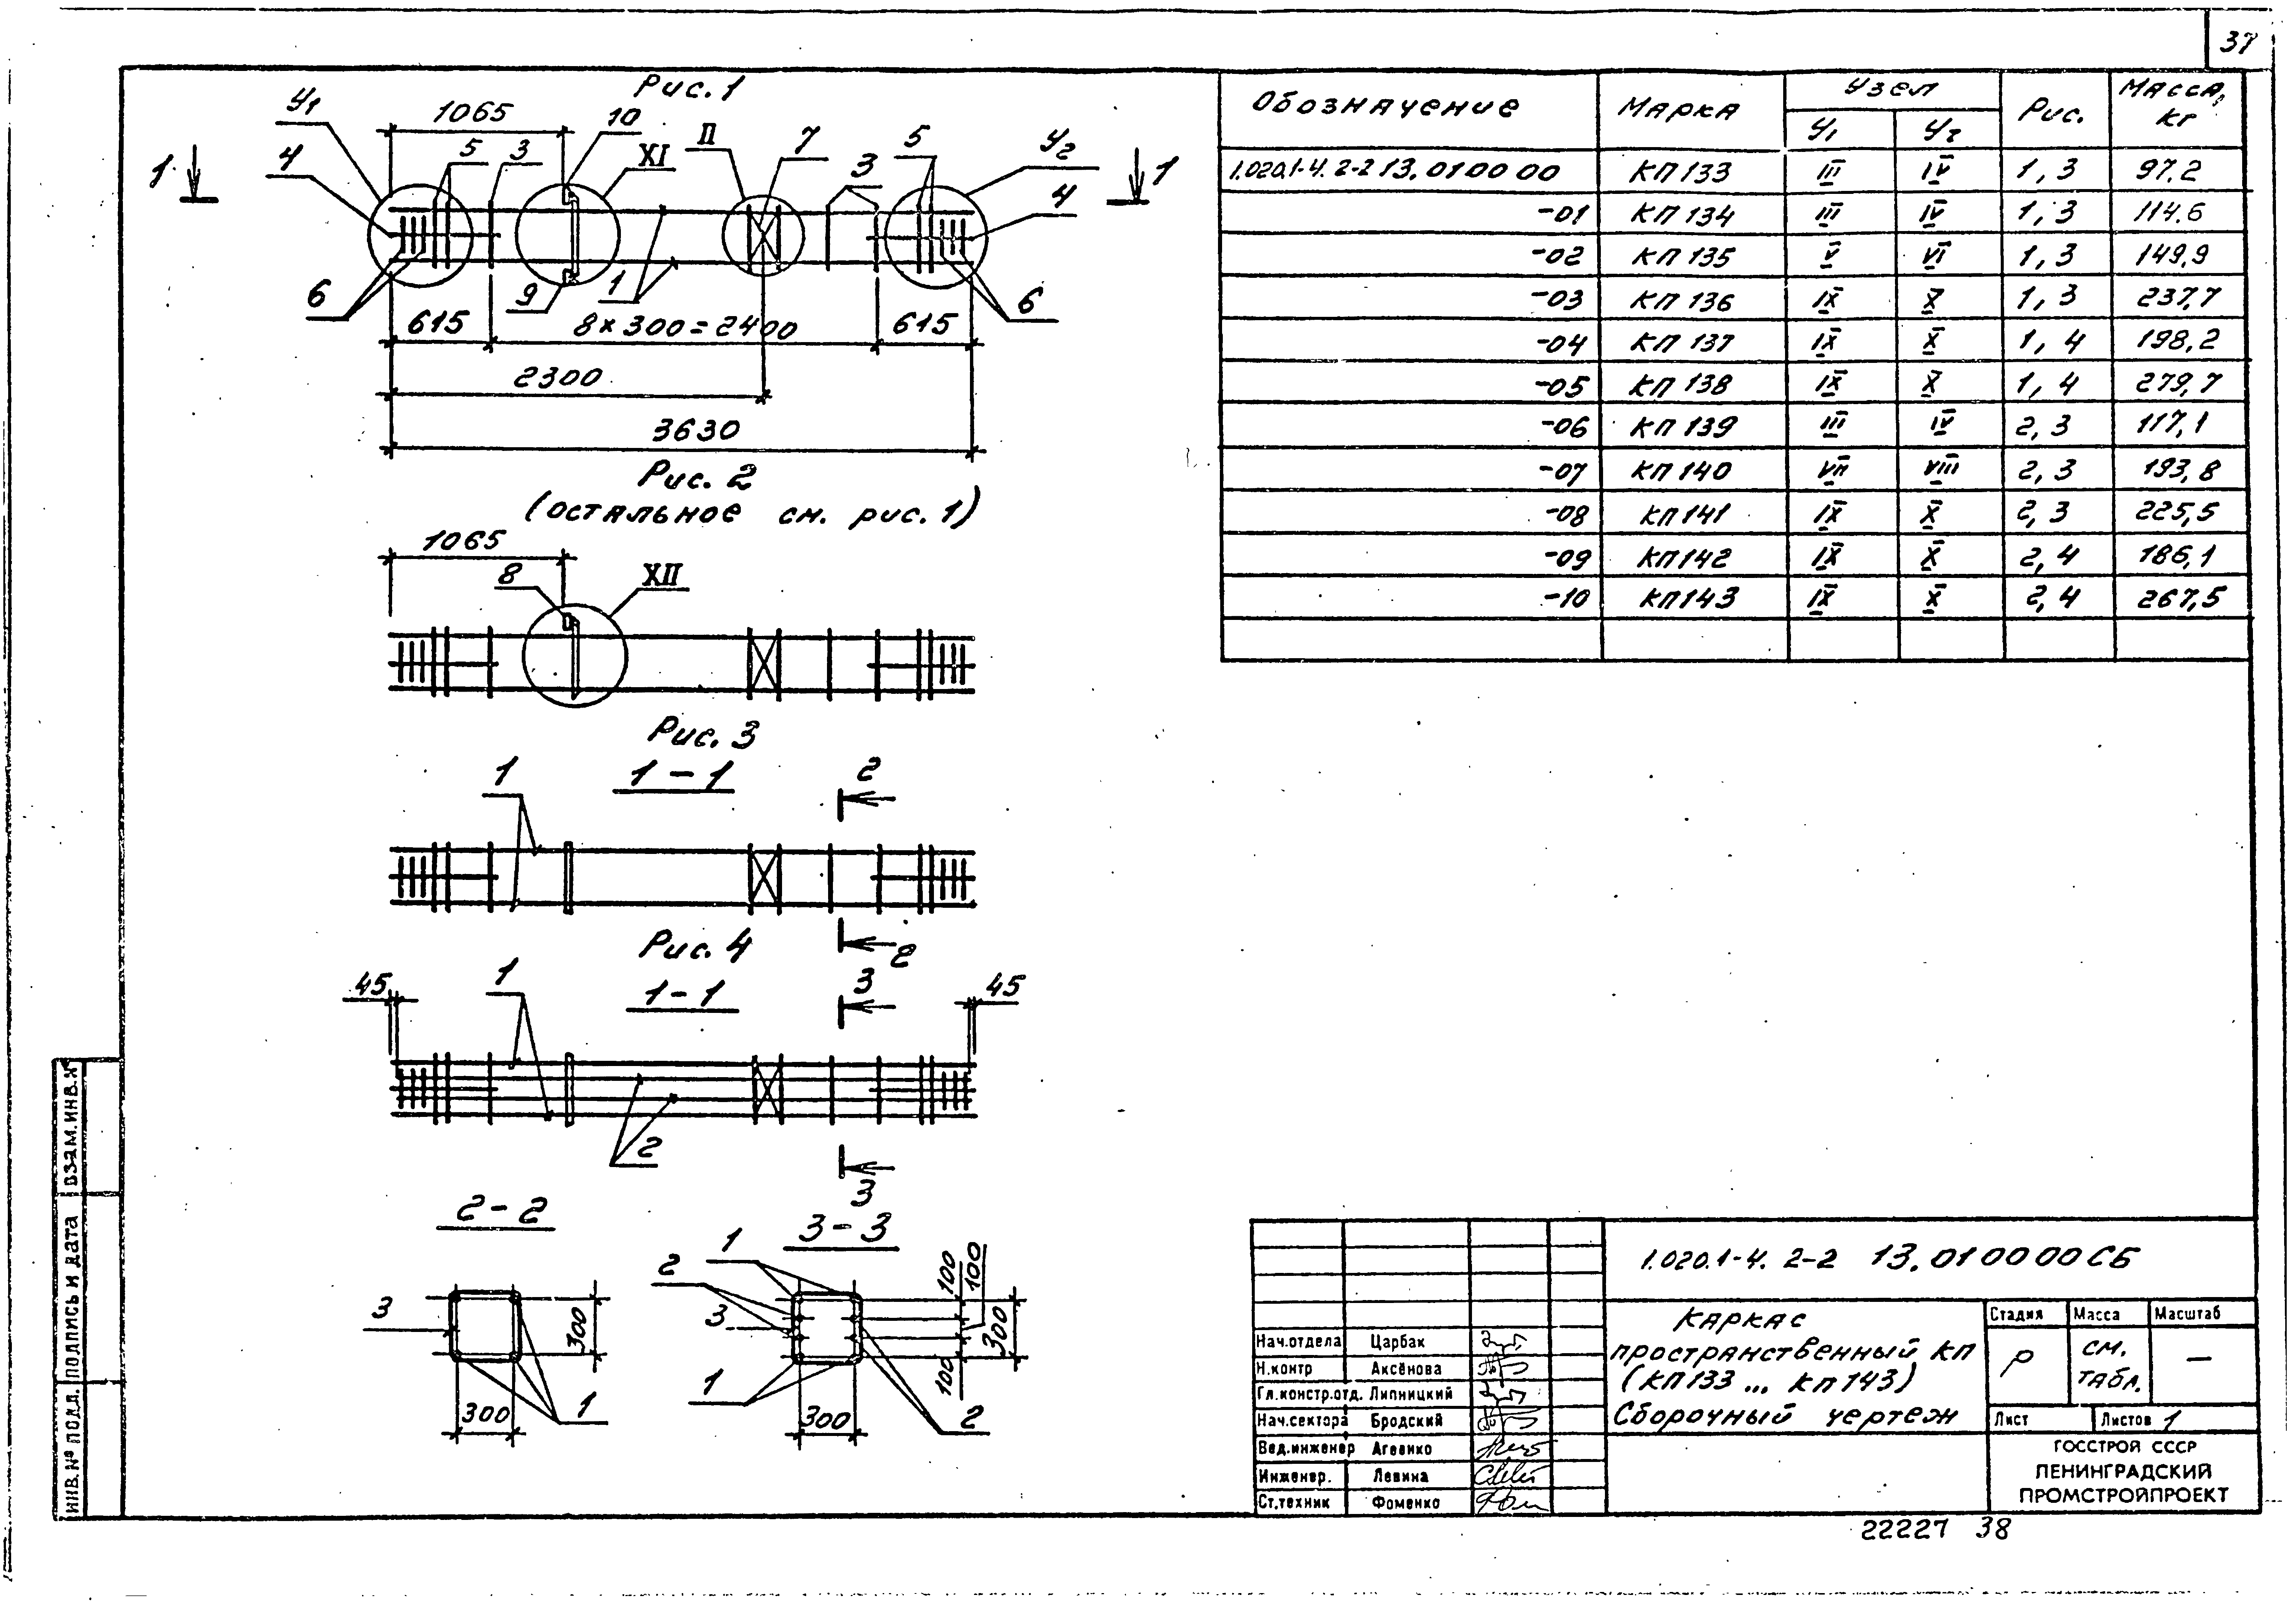 37
Рис. 1
У1
1065
10
XI
II
7
5
У2
4
5
3
3
1
1
4
6
9
1
6
615
8×300=2400
615
2300
3630
Рис. 2
(остальное см. рис. 1)
1065
8
XII
Рис. 3
1-1
1
2
2
Рис. 4
1-1
45
1
3
45
2
3
2-2
3
300
300
1
3-3
1
2
3
100
100
300
100
1
300
2
Обозначение Марка Узел Рис. Масса, кг
У1 У2
1.020.1-4. 2-2 13.01 00 00 КП 133 III IV 1, 3 97.2
-01 КП 134 III IV 1, 3 114.6
-02 КП 135 V VI 1, 3 149,9
-03 КП 136 IX X 1, 3 237,7
-04 КП 137 IX X 1, 4 198,2
-05 КП 138 IX X 1, 4 279,7
-06 КП 139 III IV 2, 3 117,1
-07 КП 140 VII VIII 2, 3 193,8
-08 КП 141 IX X 2, 3 225,5
-09 КП 142 IX X 2, 4 186,1
-10 КП 143 IX X 2, 4 267,5
1.020.1-4. 2-2 13.01 00 00 СБ
Каркас
пространственный КП
(КП 133 ... КП 143)
Сборочный чертеж
Стадия Масса Масштаб
Р см. табл. —
Лист Листов 1
ГОССТРОЙ СССР
ЛЕНИНГРАДСКИЙ
ПРОМСТРОЙПРОЕКТ
Нач.отдела Царбак
Н.контр Аксёнова
Гл.констр.отд. Липницкий
Нач.сектора Бродский
Вед.инженер Агеенко
Инженер. Левина
Ст.техник Фоменко
ИНВ.№ ПОДЛ. ПОДПИСЬ И ДАТА ВЗАМ.ИНВ.№
22227 38